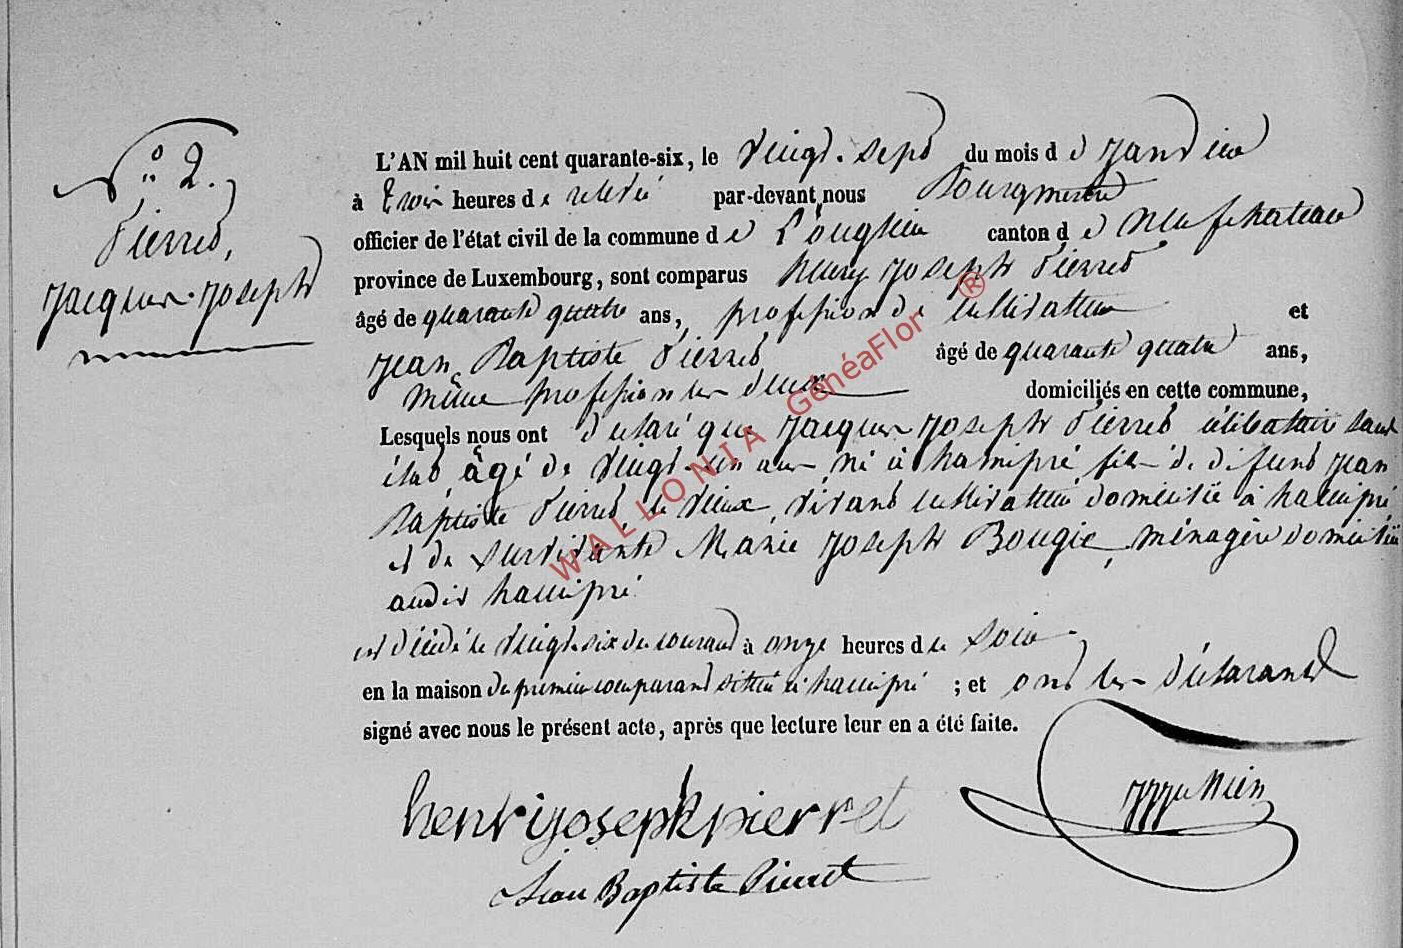 N° 2.
Pierret,
Jacques Joseph
L'AN mil huit cent quarante-six, le vingt-sept du mois de Janvier
à trois heures de relevé par-devant nous Bourgmestre
officier de l'état civil de la commune de Longlier canton de Neufchateau
province de Luxembourg, sont comparus henry Joseph Pierret
âgé de quarante quatre ans, profession de cultivateur et
Jean Baptiste Pierret âgé de quarante quatre ans,
même profession les deux domiciliés en cette commune,
Lesquels nous ont déclaré que Jacques Joseph Pierret célibataire sans
état âgé de vingt-un ans né à hamipré fils de défunt Jean
Baptiste Pierret, le vieux, vivant cultivateur domicilié à hamipré
et de survivante Marie Joseph Bougie, ménagère domiciliée
audit hamipré
est décédé le vingt-six du courant à onze heures de soir
en la maison du premier comparant située à hamipré ; et ont les déclarants
signé avec nous le présent acte, après que lecture leur en a été faite.
henri joseph pierret
Jean Baptiste Pierret
WALLONIA GénéaFlor ®